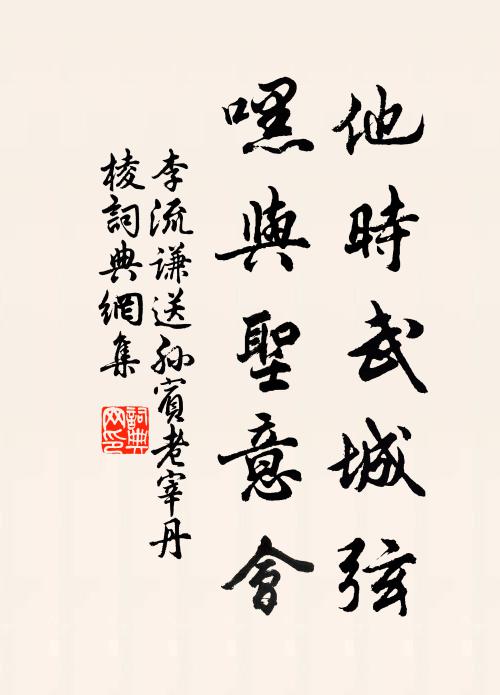 他時武城弦
嘿與聖意會
李流謙送孙賓老宰丹
棱詞典網集
詞典
网印